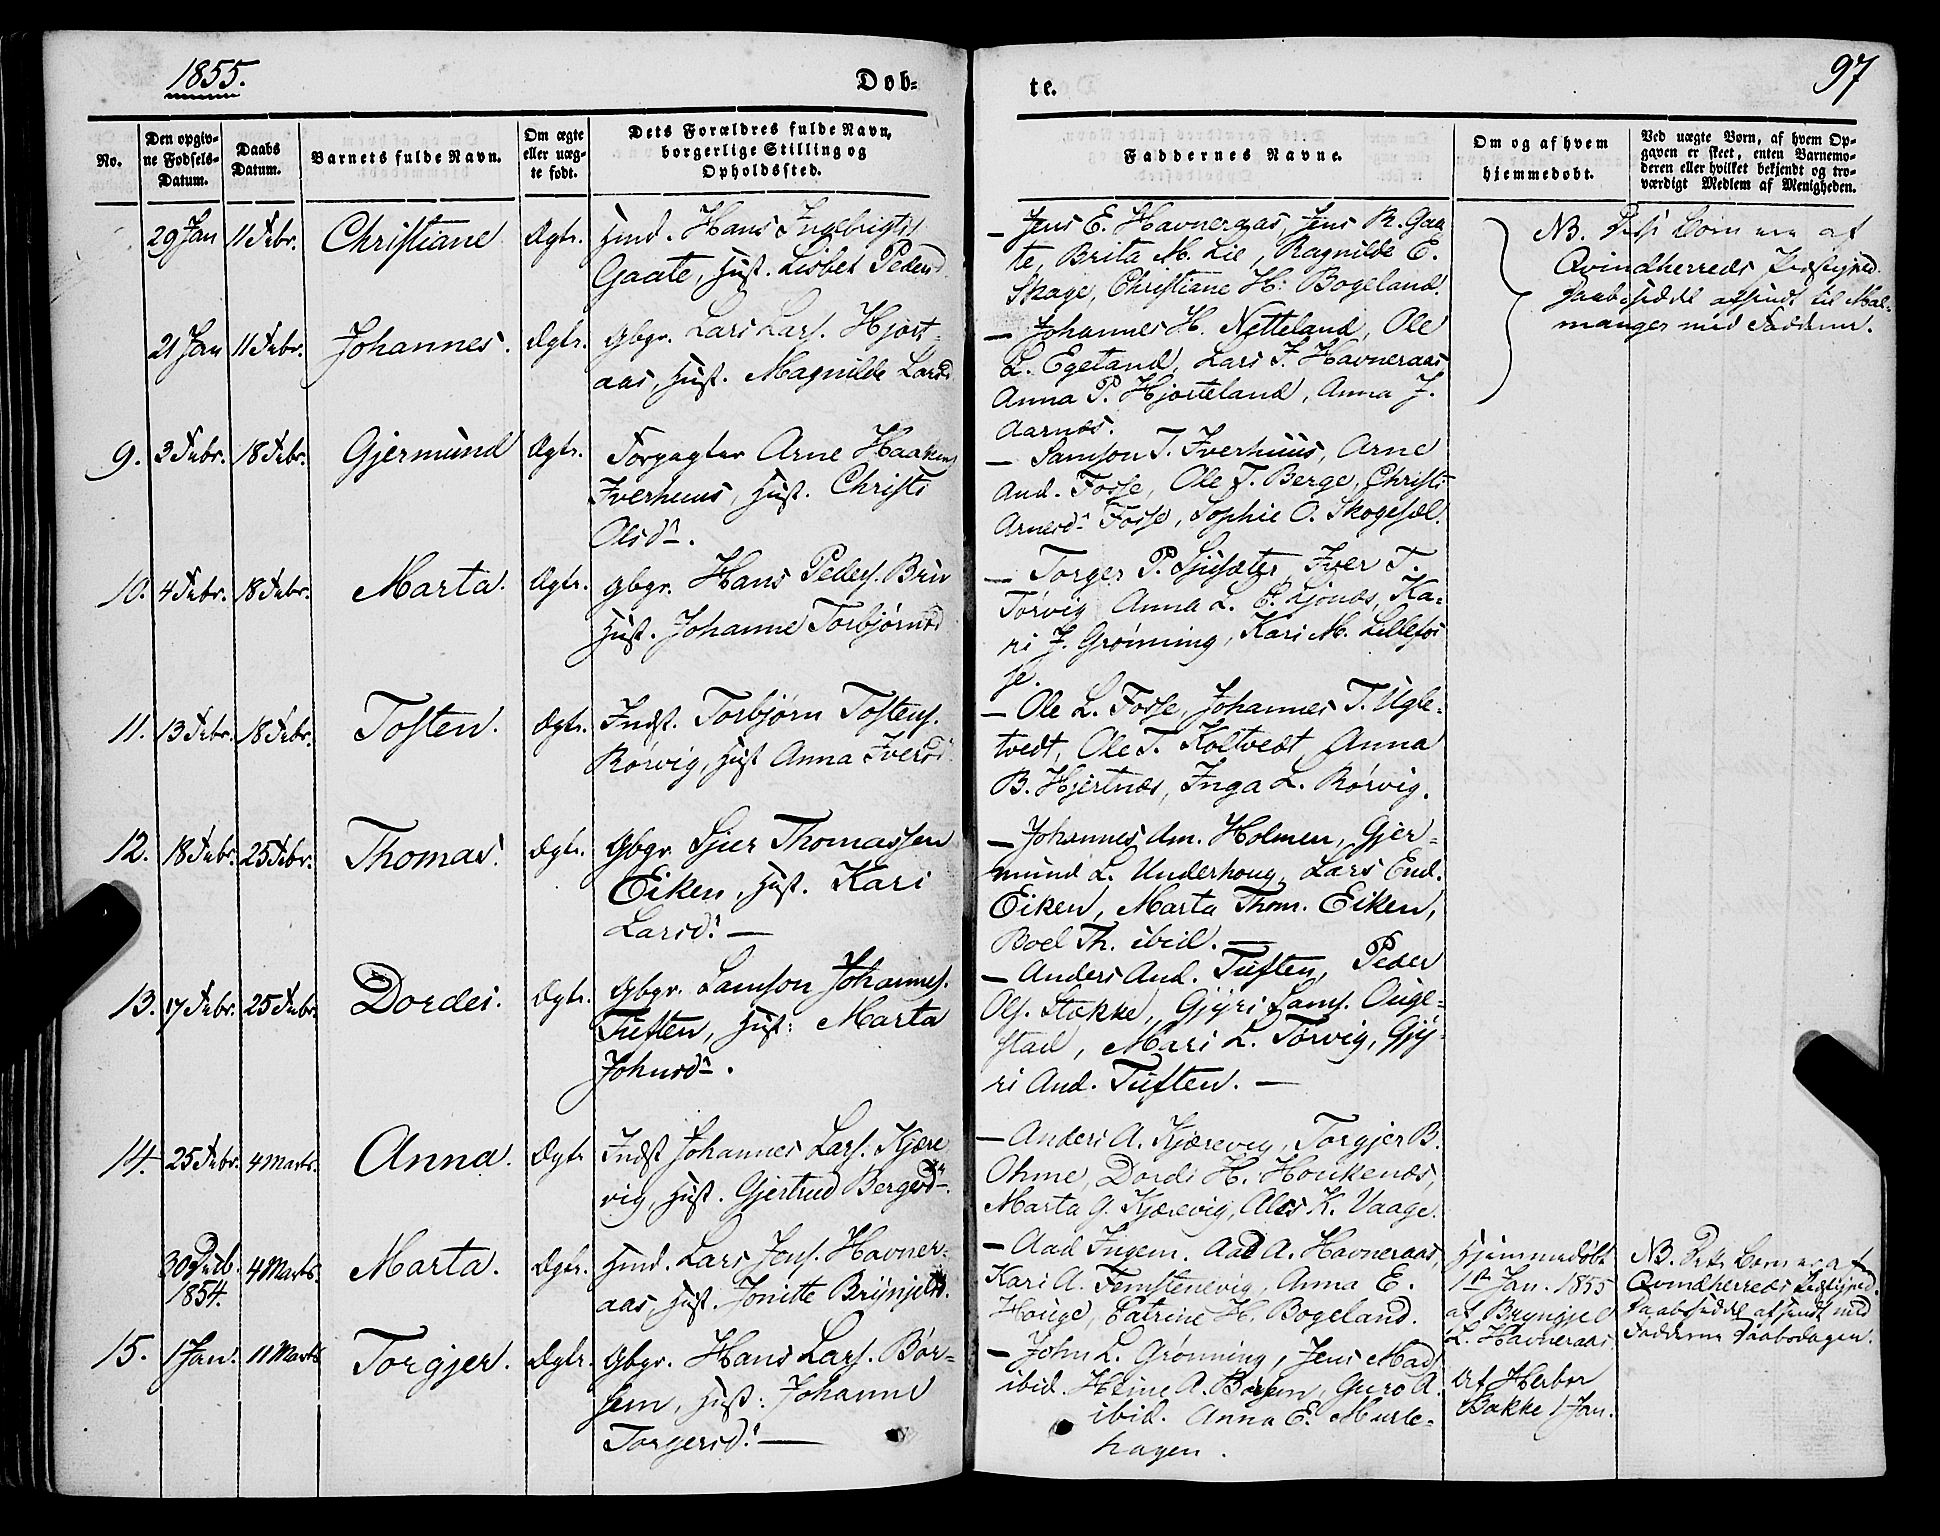 1855.
Døb-
te.
97
No.
Den opgiv-
ne Fødsels-
Datum.
Daabs
Datum.
Barnets fulde Navn.
Om ægte
eller uæg-
te født.
Dets Forældres fulde Navn,
borgerlige Stilling og
Opholdssted.
Faddernes Navne.
Om og af hvem
hjemmedøbt.
Ved uægte Børn, af hvem Op-
gaven er skeet, enten Barnemo-
deren eller hvilket bekjendt og tro-
værdigt Medlem af Menigheden.
29 Jan
11 Febr.
Christiane
Ægte.
Huusmd. Hans Ingebrigts
Gaate, Hust. Lisbet Pedersd
— Jens E. Havneraas, Jens R. Gaa
te, Brita M. Lie, Ragnilde E.
Skage, Christiane H. Bogeland.
NB. Disse Børn ere af
Qvindherreds Præstegjeld.
Daabssedel afsendt til Mal-
manger med Fadderne.
21 Jan
11 Febr.
Johannes.
Ægte.
Gbgr. Lars Lars. Hjort-
aas, Hust. Magnilde Larsd.
— Johannes H. Netteland, Ole
L. Egeland, Lars J. Havneraas
Anna P. Hjorteland, Anna J.
Aarnes.
9.
3 Febr.
18 Febr.
Gjermund
Ægte.
Forpagter Arne Haakens
Iverhuus, Hust. Christi
Olsdr.
— Samson T. Iverhuus, Arne
And. Fosse, Ole T. Berge, Christi
Arnesdr Fosse, Sophie O. Skogesæl.
10.
4 Febr.
18 Febr.
Marta.
Ægte.
Gbgr. Hans Peders. Bru
Hust. Johanne Torbjørnsd
— Torger P. Ljusæter, Iver T.
Tørvig, Anna L. E. Ljonæs, Ka-
ri J. Grønning, Kari M. Lillefos
se.
11.
13 Febr.
18 Febr.
Tosten.
Ægte.
Indst. Torbjørn Tostens.
Rørvig, Hust Anna Iversd
— Ole L. Fosse, Johannes T. Ugle-
tvedt, Ole T. Koltvedt, Anna
B. Hjertnæs, Inga L. Rørvig.
12.
18 Febr.
25 Febr.
Thomas.
Ægte.
Gbgr. Sjur Thomassen
Eiken, Hust. Kari
Larsd. —
— Johannes Am. Holmen, Gjer-
mund L. Underhoug, Lars End.
Eiken, Marta Thom. Eiken,
Boel Th. ibid. —
13.
17 Febr.
25 Febr.
Dordei.
Ægte.
Gbgr. Samson Johannes.
Tuften, Hust: Marta
Johnsdr.
— Anders And. Tuften, Peder
Ols. Stække, Gjyri Sams. Ouge-
stad, Mari L. Tørvig, Gjy-
ri And. Tuften. —
14.
25 Febr.
4 Marts.
Anna.
Ægte
Indst Johannes Lars. Kjære
vig, Hust. Gjertrud Bergesd.
— Anders A. Kjærevig, Torgjer B.
Ohme, Dordi H. Houkenæs,
Marta G. Kjærevig, Ales K. Vaage.
30 Decb.
1854.
4 Marts.
Marta.
Ægte.
Huusmd. Lars Jens. Havner-
aas, Hust. Jonitte Brynjelsd.
— Aad Ingem. Aad A. Havneraas,
Kari A. Femstenevig, Anna E.
Houge, Catrine H. Bogeland.
Hjemmedøbt
1ste Jan. 1855
af Brynjel
L. Havneraas.
NB. Dette Barn er af
Qvindherreds Præstegjeld.
Daabssedel afsendt med
Fadderne Daabsdagen.
15.
1 Jan.
11 Marts
Torgjer.
Ægte.
Gbgr. Hans Lars. Bør-
sem, Hust: Johanne
Torgersd. —
— John L. Grønning, Jens Mads
ibid. Heine A. Børsem, Guro A.
ibid. Anna E. Murle-
hagen.
af Herbor
Bakke 1 Jan.